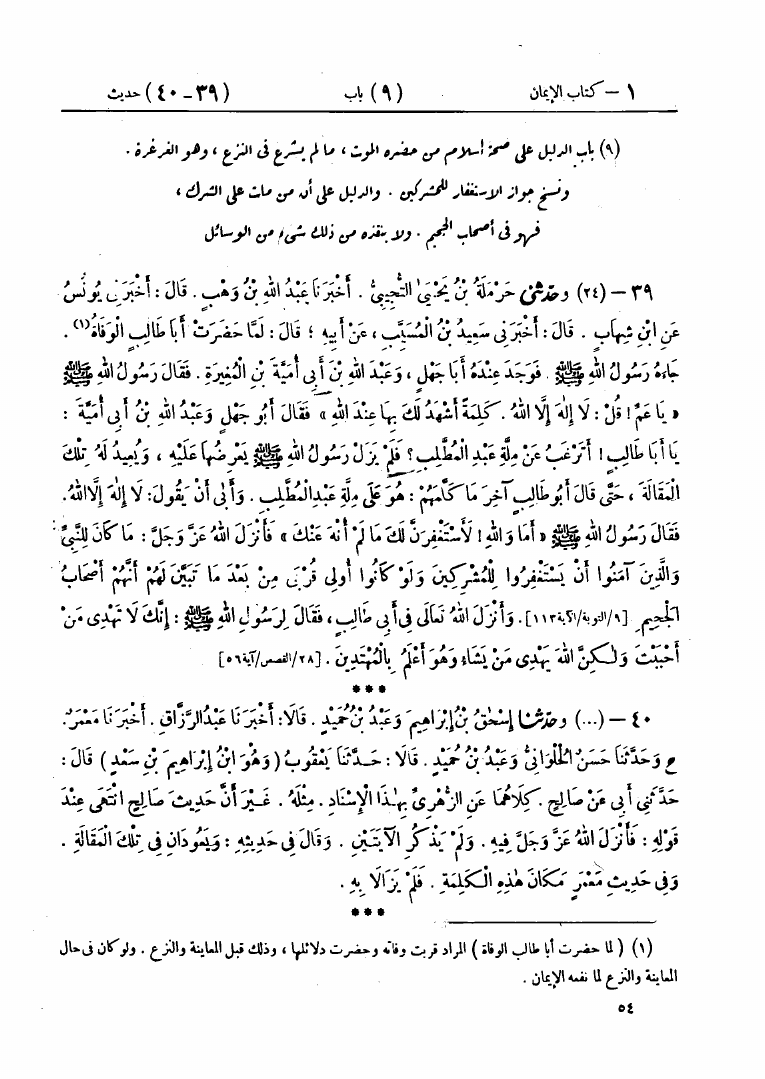 ١ – كتاب الإيمان (٩) باب (٣٩ – ٤٠) حديث
(٩) باب الدليل على صحة إسلام من حضره الموت ، ما لم يشرع فى النزع ، وهو الغرغرة .
ونسخ جواز الاستغفار للمشركين . والدليل على أن من مات على الشرك ،
فهو فى أصحاب الجحيم . ولا ينقذه من ذلك شىء من الوسائل
٣٩ – (٢٤) وحدثنى حَرْمَلَةُ بْنُ يَحْيَىٰ التُّجِيبِيُّ . أَخْبَرَنَا عَبْدُ اللهِ بْنُ وَهْبٍ . قَالَ : أَخْبَرَنِى يُونُسُ
عَنِ ابْنِ شِهَابٍ . قَالَ : أَخْبَرَنِى سَعِيدُ بْنُ الْمُسَيَّبِ ، عَنْ أَبِيهِ ؛ قَالَ : لَمَّا حَضَرَتْ أَبَا طَالِبٍ الْوَفَاةُ(١) .
جَاءَهُ رَسُولُ اللهِ ﷺ . فَوَجَدَ عِنْدَهُ أَبَا جَهْلٍ ، وَعَبْدَ اللهِ بْنَ أَبِى أُمَيَّةَ بْنِ الْمُغِيرَةِ . فَقَالَ رَسُولُ اللهِ ﷺ
« يَا عَمِّ ! قُلْ : لَا إِلٰهَ إِلَّا اللهُ . كَلِمَةً أَشْهَدُ لَكَ بِهَا عِنْدَ اللهِ » فَقَالَ أَبُو جَهْلٍ وَعَبْدُ اللهِ بْنُ أَبِى أُمَيَّةَ :
يَا أَبَا طَالِبٍ ! أَتَرْغَبُ عَنْ مِلَّةِ عَبْدِ الْمُطَّلِبِ ؟ فَلَمْ يَزَلْ رَسُولُ اللهِ ﷺ يَعْرِضُهَا عَلَيْهِ ، وَيُعِيدُ لَهُ تِلْكَ
الْمَقَالَةَ ، حَتَّى قَالَ أَبُو طَالِبٍ آخِرَ مَا كَلَّمَهُمْ : هُوَ عَلَى مِلَّةِ عَبْدِ الْمُطَّلِبِ . وَأَبَى أَنْ يَقُولَ : لَا إِلٰهَ إِلَّا اللهُ .
فَقَالَ رَسُولُ اللهِ ﷺ « أَمَا وَاللهِ ! لَأَسْتَغْفِرَنَّ لَكَ مَا لَمْ أُنْهَ عَنْكَ » فَأَنْزَلَ اللهُ عَزَّ وَجَلَّ : مَا كَانَ لِلنَّبِيِّ
وَالَّذِينَ آمَنُوا أَنْ يَسْتَغْفِرُوا لِلْمُشْرِكِينَ وَلَوْ كَانُوا أُولِى قُرْبَى مِنْ بَعْدِ مَا تَبَيَّنَ لَهُمْ أَنَّهُمْ أَصْحَابُ
الْجَحِيمِ [٩/التوبة/الآية ١١٣] . وَأَنْزَلَ اللهُ تَعَالَى فِى أَبِى طَالِبٍ ، فَقَالَ لِرَسُولِ اللهِ ﷺ : إِنَّكَ لَا تَهْدِى مَنْ
أَحْبَبْتَ وَلَٰكِنَّ اللهَ يَهْدِى مَنْ يَشَاءُ وَهُوَ أَعْلَمُ بِالْمُهْتَدِينَ . [٢٨/القصص/آية ٥٦]
***
٤٠ – (...) وحدثنا إِسْحَقُ بْنُ إِبْرَاهِيمَ وَعَبْدُ بْنُ حُمَيْدٍ . قَالَا : أَخْبَرَنَا عَبْدُ الرَّزَّاقِ . أَخْبَرَنَا مَعْمَرٌ .
ح وَحَدَّثَنَا حَسَنٌ الْحُلْوَانِيُّ وَعَبْدُ بْنُ حُمَيْدٍ . قَالَا : حَدَّثَنَا يَعْقُوبُ ( وَهُوَ ابْنُ إِبْرَاهِيمَ بْنِ سَعْدٍ ) قَالَ :
حَدَّثَنِى أَبِى عَنْ صَالِحٍ . كِلَاهُمَا عَنِ الزُّهْرِيِّ بِهَٰذَا الْإِسْنَادِ . مِثْلَهُ . غَيْرَ أَنَّ حَدِيثَ صَالِحٍ انْتَهَى عِنْدَ
قَوْلِهِ : فَأَنْزَلَ اللهُ عَزَّ وَجَلَّ فِيهِ . وَلَمْ يَذْكُرِ الْآيَتَيْنِ . وَقَالَ فِى حَدِيثِهِ : وَيَعُودَانِ فِى تِلْكَ الْمَقَالَةِ .
وَفِى حَدِيثِ مَعْمَرٍ مَكَانَ هَٰذِهِ الْكَلِمَةِ . فَلَمْ يَزَالَا بِهِ .
***
(١) ( لما حضرت أبا طالب الوفاة ) المراد قربت وفاته وحضرت دلائلها ، وذلك قبل المعاينة والنزع . ولو كان فى حال
المعاينة والنزع لما نفعه الإيمان .
٥٤